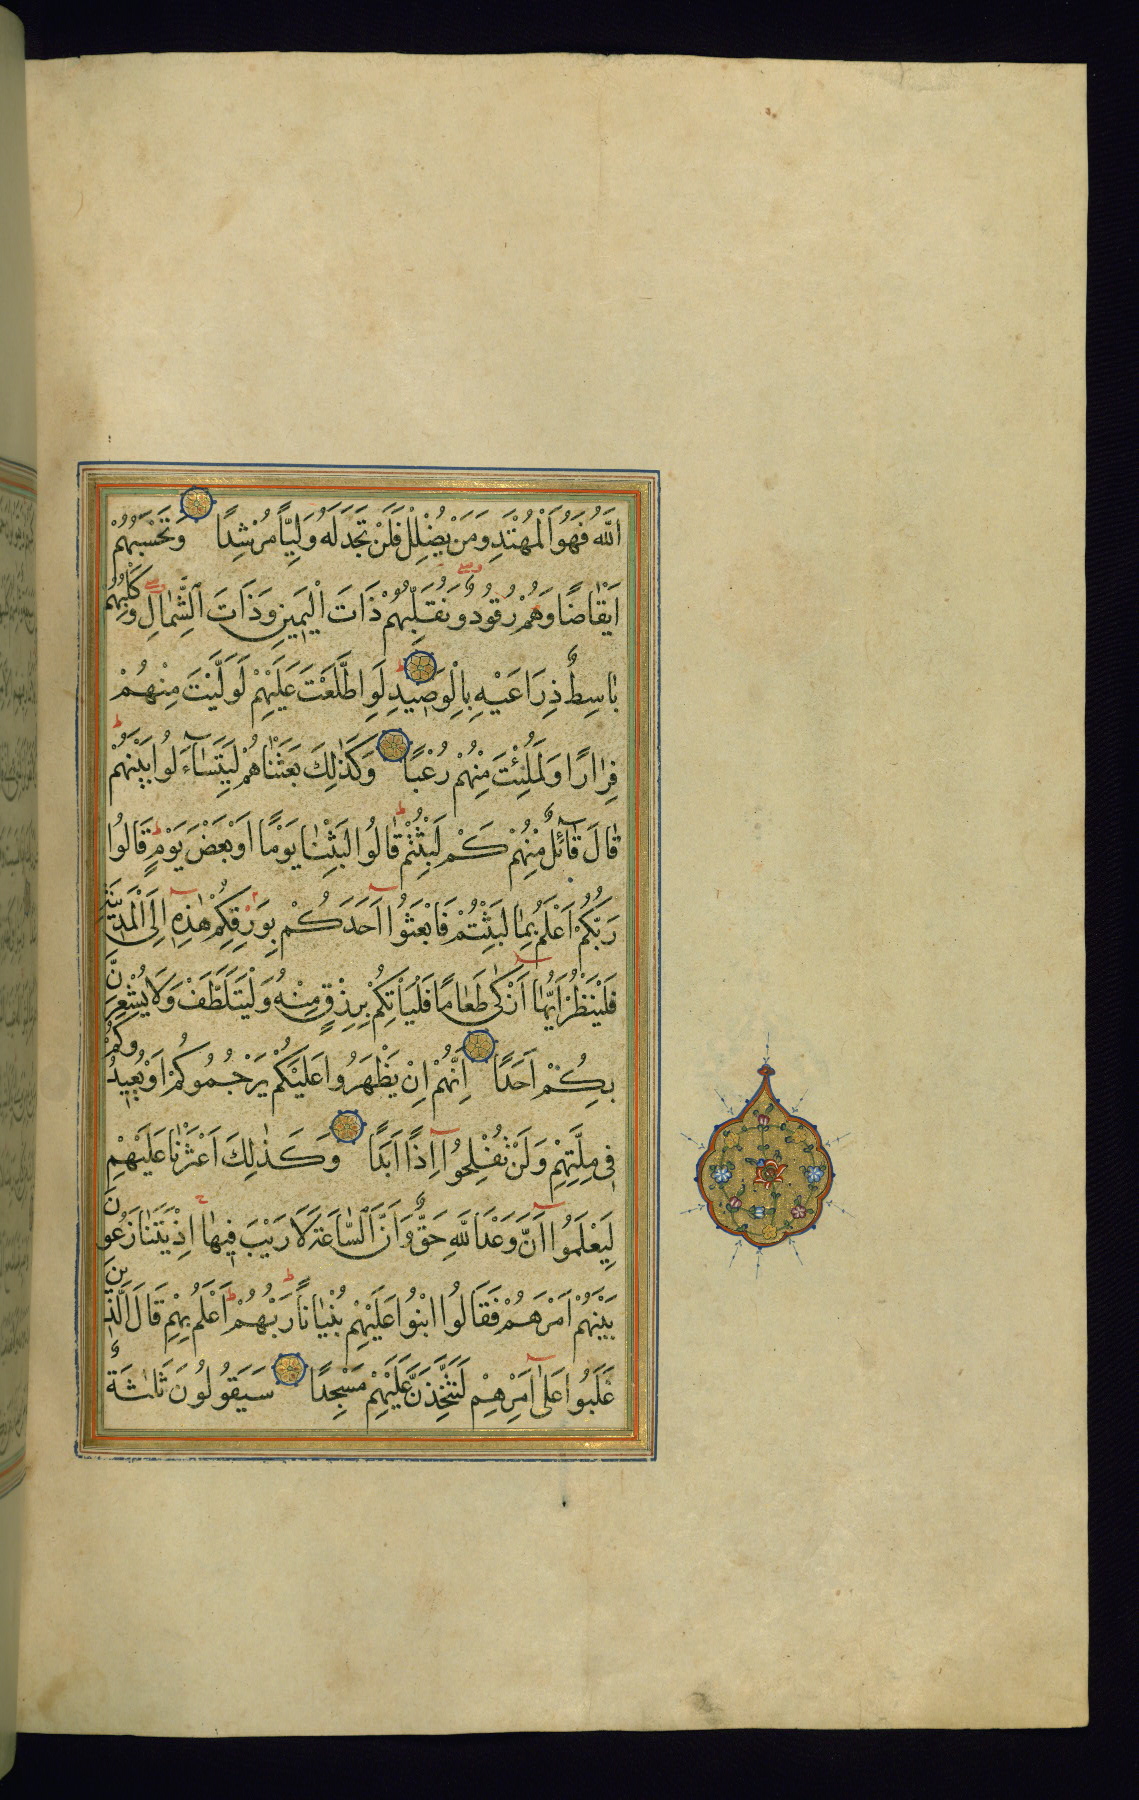 اللّٰهُ فَهُوَ الْمُهْتَدِ وَمَنْ يُضْلِلْ فَلَنْ تَجِدَ لَهُ وَلِيًّا مُرْشِدًا وَتَحْسَبُهُمْ
اَيْقَاظًا وَهُمْ رُقُودٌ وَنُقَلِّبُهُمْ ذَاتَ الْيَمِينِ وَذَاتَ الشِّمَالِ وَكَلْبُهُمْ
بَاسِطٌ ذِرَاعَيْهِ بِالْوَصِيدِ لَوِ اطَّلَعْتَ عَلَيْهِمْ لَوَلَّيْتَ مِنْهُمْ
فِرَارًا وَلَمُلِئْتَ مِنْهُمْ رُعْبًا وَكَذٰلِكَ بَعَثْنَاهُمْ لِيَتَسَآءَلُوا بَيْنَهُمْ
قَالَ قَآئِلٌ مِنْهُمْ كَمْ لَبِثْتُمْ قَالُوا لَبِثْنَا يَوْمًا اَوْ بَعْضَ يَوْمٍ قَالُوا
رَبُّكُمْ اَعْلَمُ بِمَا لَبِثْتُمْ فَابْعَثُوا اَحَدَكُمْ بِوَرِقِكُمْ هٰذِهِ اِلَى الْمَدِينَةِ
فَلْيَنْظُرْ اَيُّهَا اَزْكٰى طَعَامًا فَلْيَأْتِكُمْ بِرِزْقٍ مِنْهُ وَلْيَتَلَطَّفْ وَلَا يُشْعِرَنَّ
بِكُمْ اَحَدًا اِنَّهُمْ اِنْ يَظْهَرُوا عَلَيْكُمْ يَرْجُمُوكُمْ اَوْ يُعِيدُوكُمْ
فِي مِلَّتِهِمْ وَلَنْ تُفْلِحُوا اِذًا اَبَدًا وَكَذٰلِكَ اَعْثَرْنَا عَلَيْهِمْ
لِيَعْلَمُوا اَنَّ وَعْدَ اللّٰهِ حَقٌّ وَاَنَّ السَّاعَةَ لَا رَيْبَ فِيهَا اِذْ يَتَنَازَعُونَ
بَيْنَهُمْ اَمْرَهُمْ فَقَالُوا ابْنُوا عَلَيْهِمْ بُنْيَانًا رَبُّهُمْ اَعْلَمُ بِهِمْ قَالَ الَّذِينَ
غَلَبُوا عَلٰى اَمْرِهِمْ لَنَتَّخِذَنَّ عَلَيْهِمْ مَسْجِدًا سَيَقُولُونَ ثَلٰثَةٌ